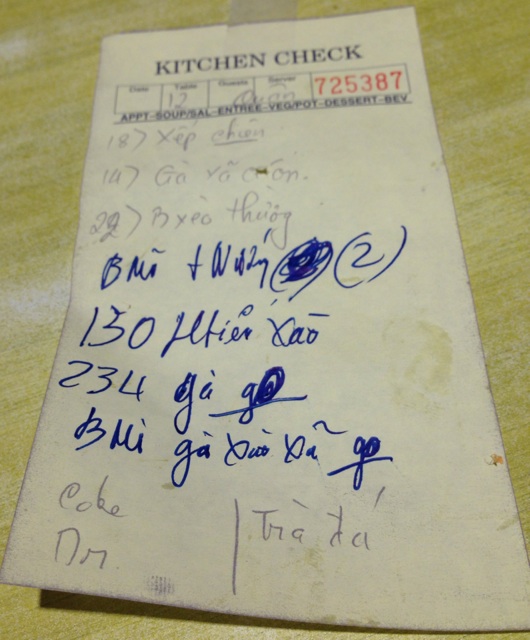 KITCHEN CHECK
Date Table Guests Server 725387
12 Quân
APPT-SOUP/SAL-ENTREE-VEG/POT-DESSERT-BEV
18) xếp chiên
14) Gà xã
22) Bxèo thường
B Mì + (2)
130 xào
234 gà go
B Mì gà xào xã go
Coke
Dr. | Trà Đá